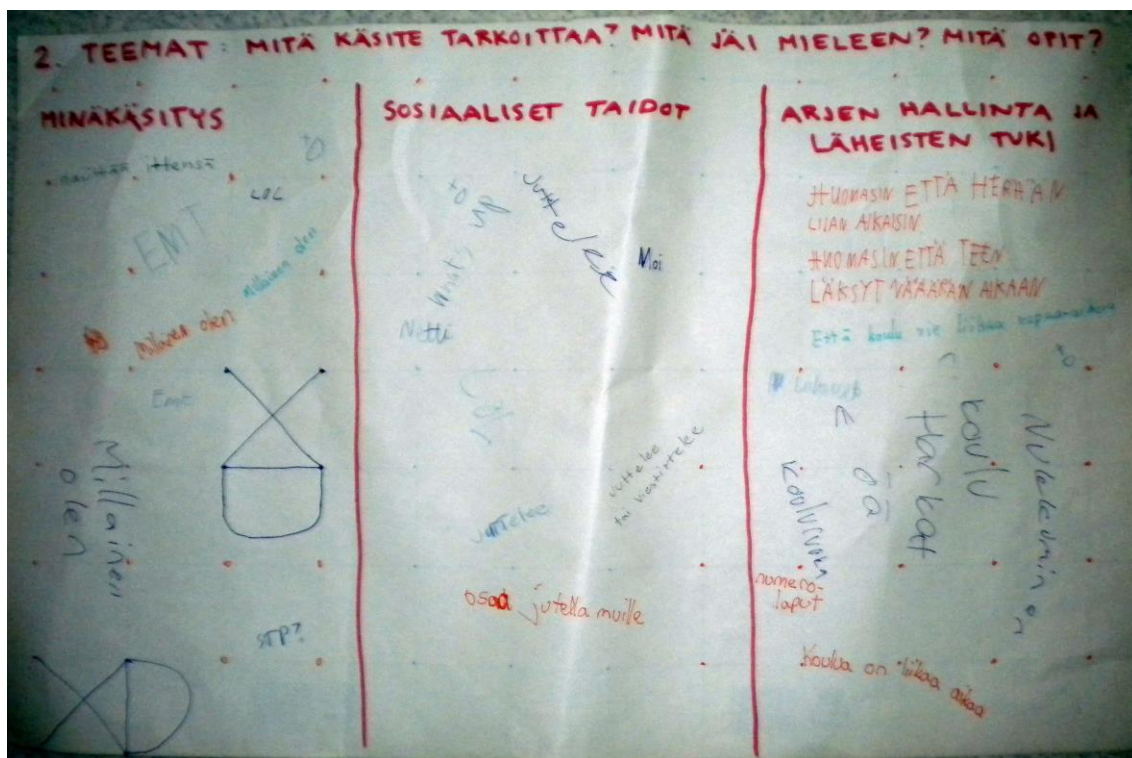 2. TEEMAT: MITÄ KÄSITE TARKOITTAA? MITÄ JÄI MIELEEN? MITÄ OPIT?
MINÄKÄSITYS
ittensä
LOL
EMT
Millainen olen
Millainen olen
Emt
Millainen
olen
STP?
SOSIAALISET TAIDOT
Juttelee
whats up
Moi
Netti
LOL
juttelee
tai viestittelee
juttelee
osaa jutella muille
ARJEN HALLINTA JA
LÄHEISTEN TUKI
HUOMASIN ETTÄ HERÄÄN
LIIAN AIKAISIN
HUOMASIN ETTÄ TEEN
LÄKSYT VÄÄRÄÄN AIKAAN
Että koulu vie liikaa
Kouluruoka
Harkat
Koulu
Nukkumin en
numero-
laput
Koulua on liikaa aikaa